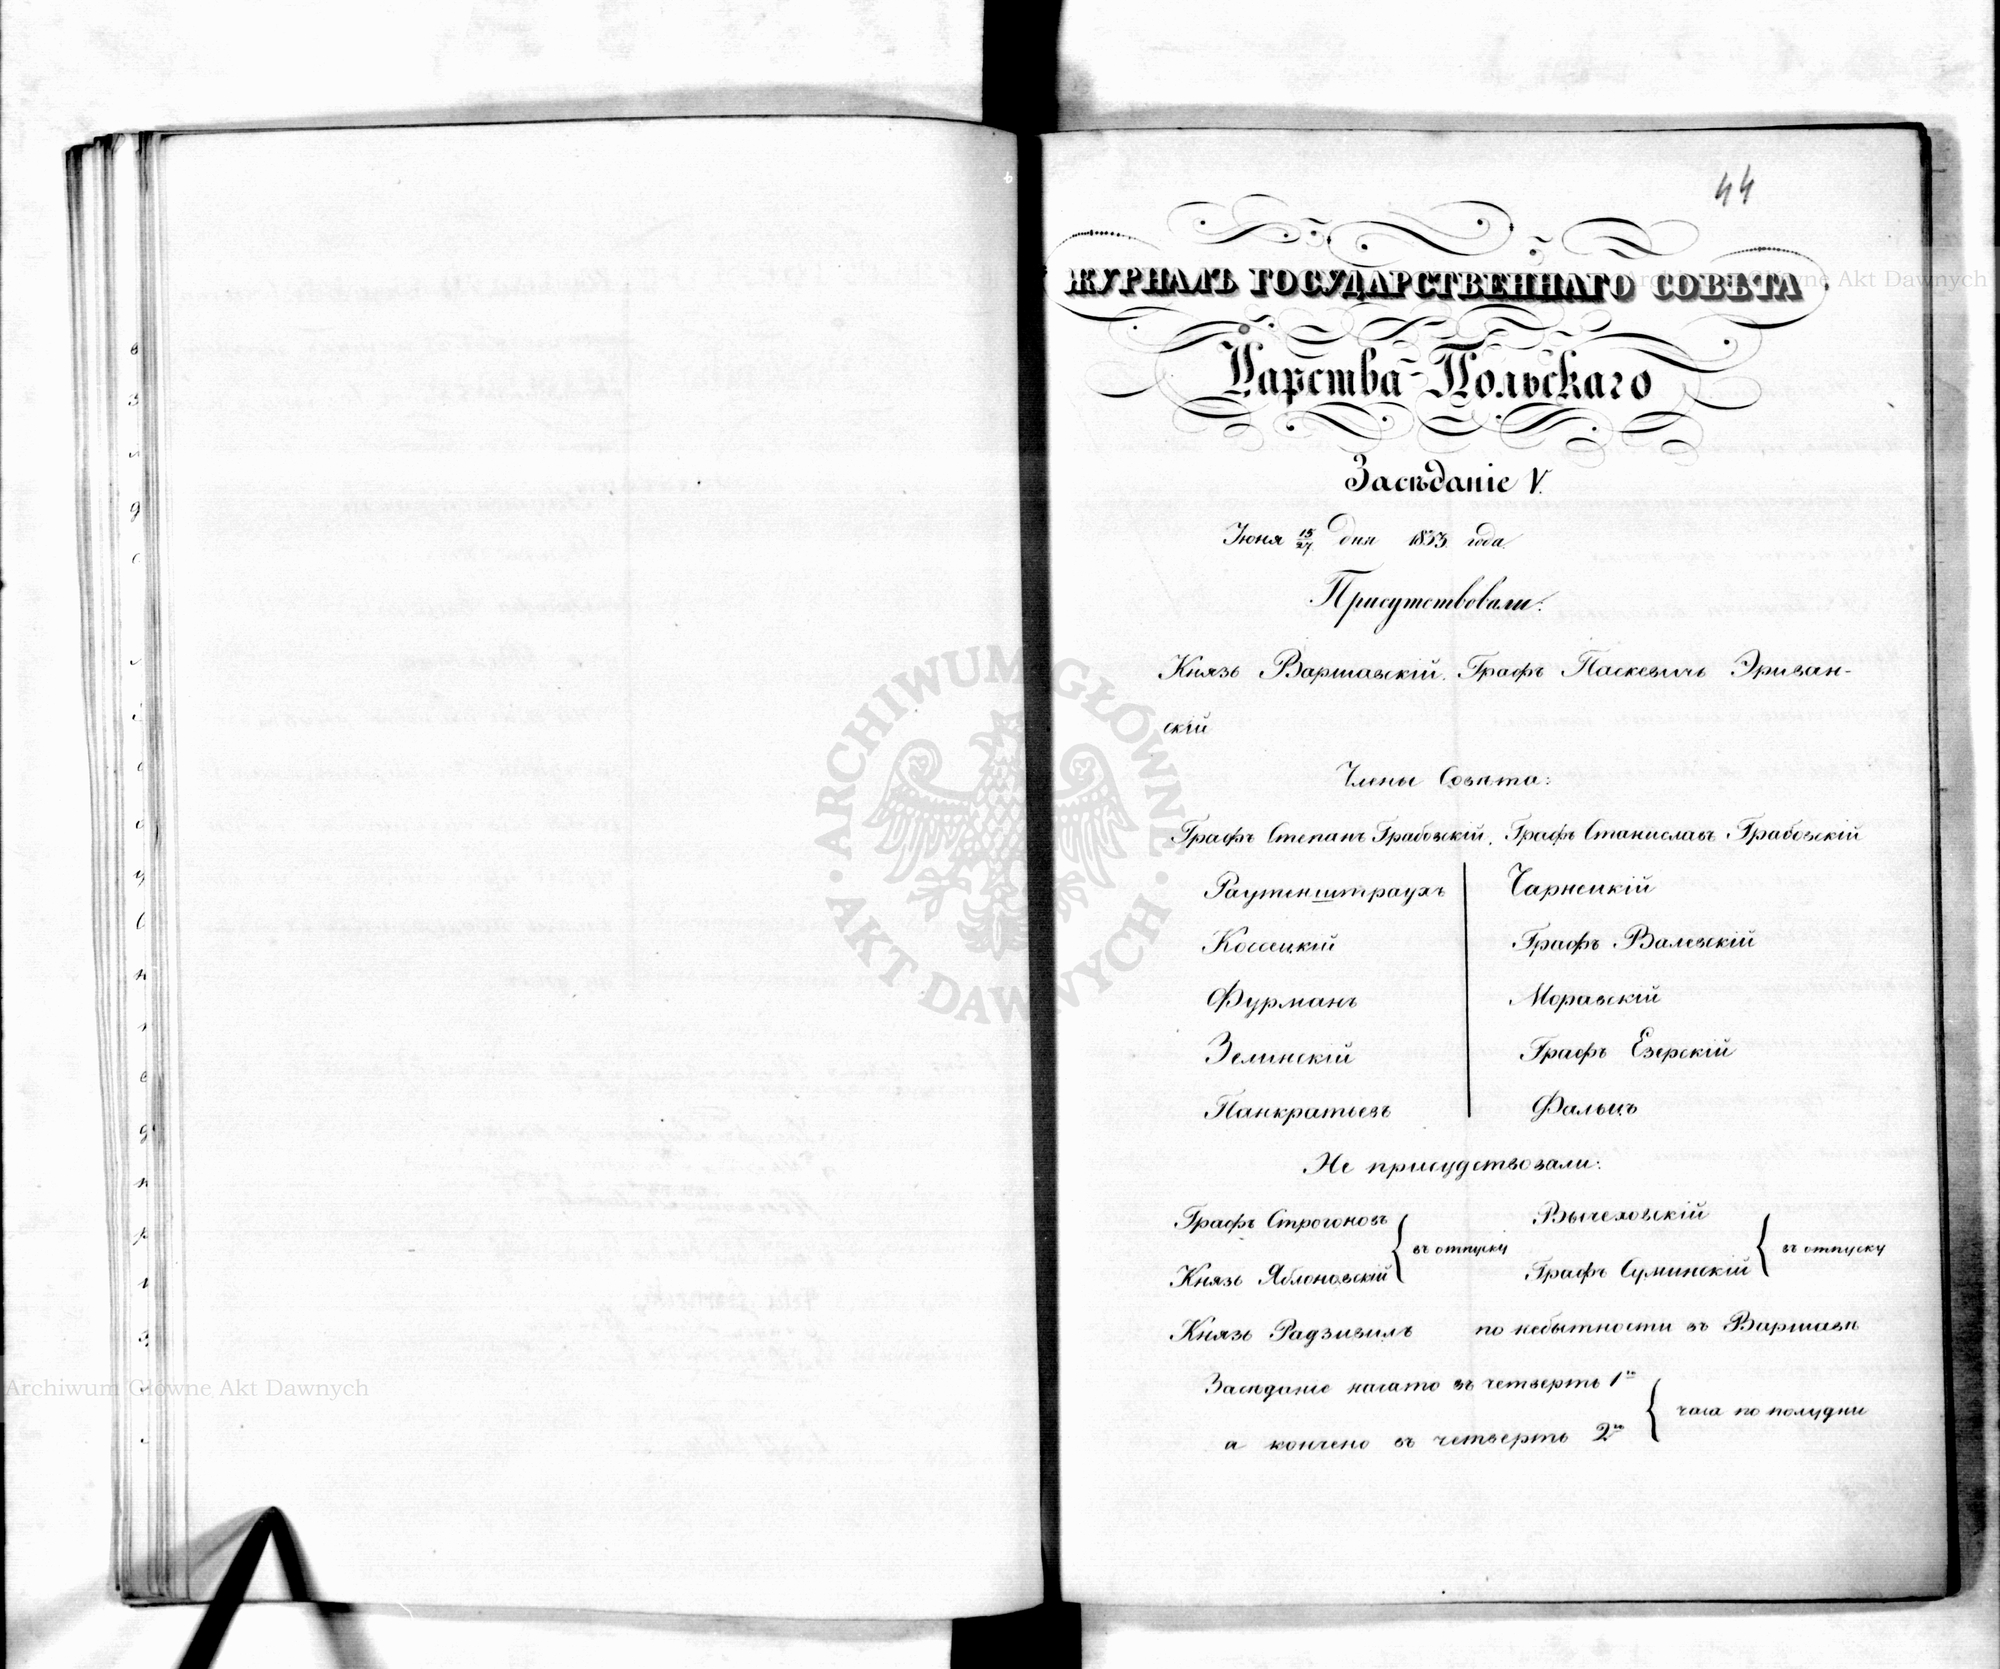 44
ЖУРНАЛЪ ГОСУДАРСТВЕННАГО СОВѢТА
Царства Польскаго
Засѣданіе V.
Іюня 15/27 дня 1833 года.
Присутствовали:
Князь Варшавскій, Графъ Паскевичь Эриван-
скій
Члены Совѣта:
Графъ Степанъ Грабовскій, Графъ Станиславъ Грабовскій
Раутенштраухъ Чарнецкій
Коссецкій Графъ Валевскій
Фурманъ Моравскій
Зелинскій Графъ Езерскій
Панкратьевъ Фальцъ
Не присудствовали:
Графъ Строгоновъ Вычеховскій
въ отпуску въ отпуску
Князь Яблоновскій Графъ Суминскій
Князь Радзивилъ по небытности въ Варшавѣ
Засѣданіе начато въ четверть 1го
часа по полудни
а кончено въ четверть 2го
ARCHIWUM GŁÓWNE AKT DAWNYCH
Archiwum Główne Akt Dawnych
Archiwum Główne Akt Dawnych